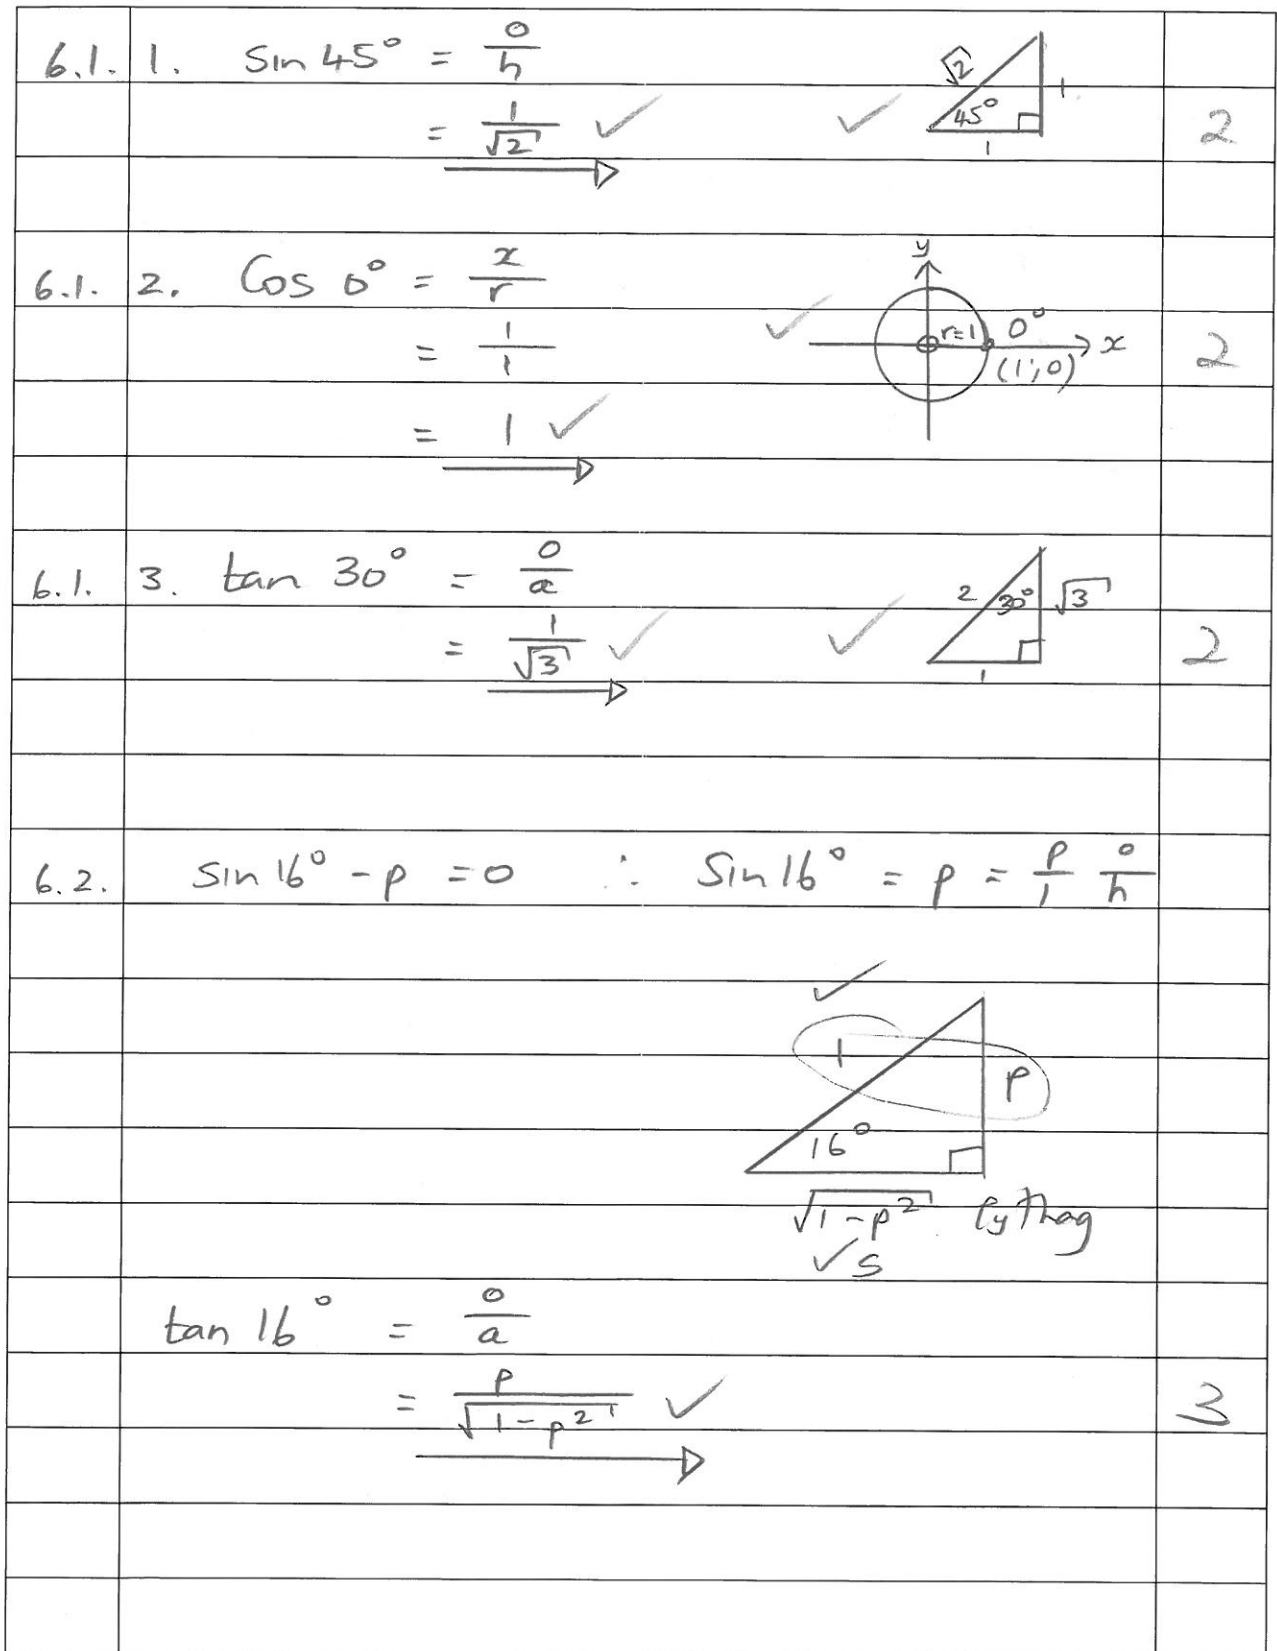 6.1. 1. Sin 45° = o/h
√2 1 45° 1
= 1/√2 ✓ ✓ 2
6.1. 2. Cos 0° = x/r
y r=1 0° x (1;0)
= 1/1 ✓ 2
= 1 ✓
6.1. 3. tan 30° = o/a
2 30° √3 1
= 1/√3 ✓ ✓ 2
6.2. Sin 16° - p = 0 ∴ Sin 16° = p = p/1 o/h
✓
1 p
16°
√1-p² Pythag
✓ S
tan 16° = o/a
= p/√1-p² ✓ 3